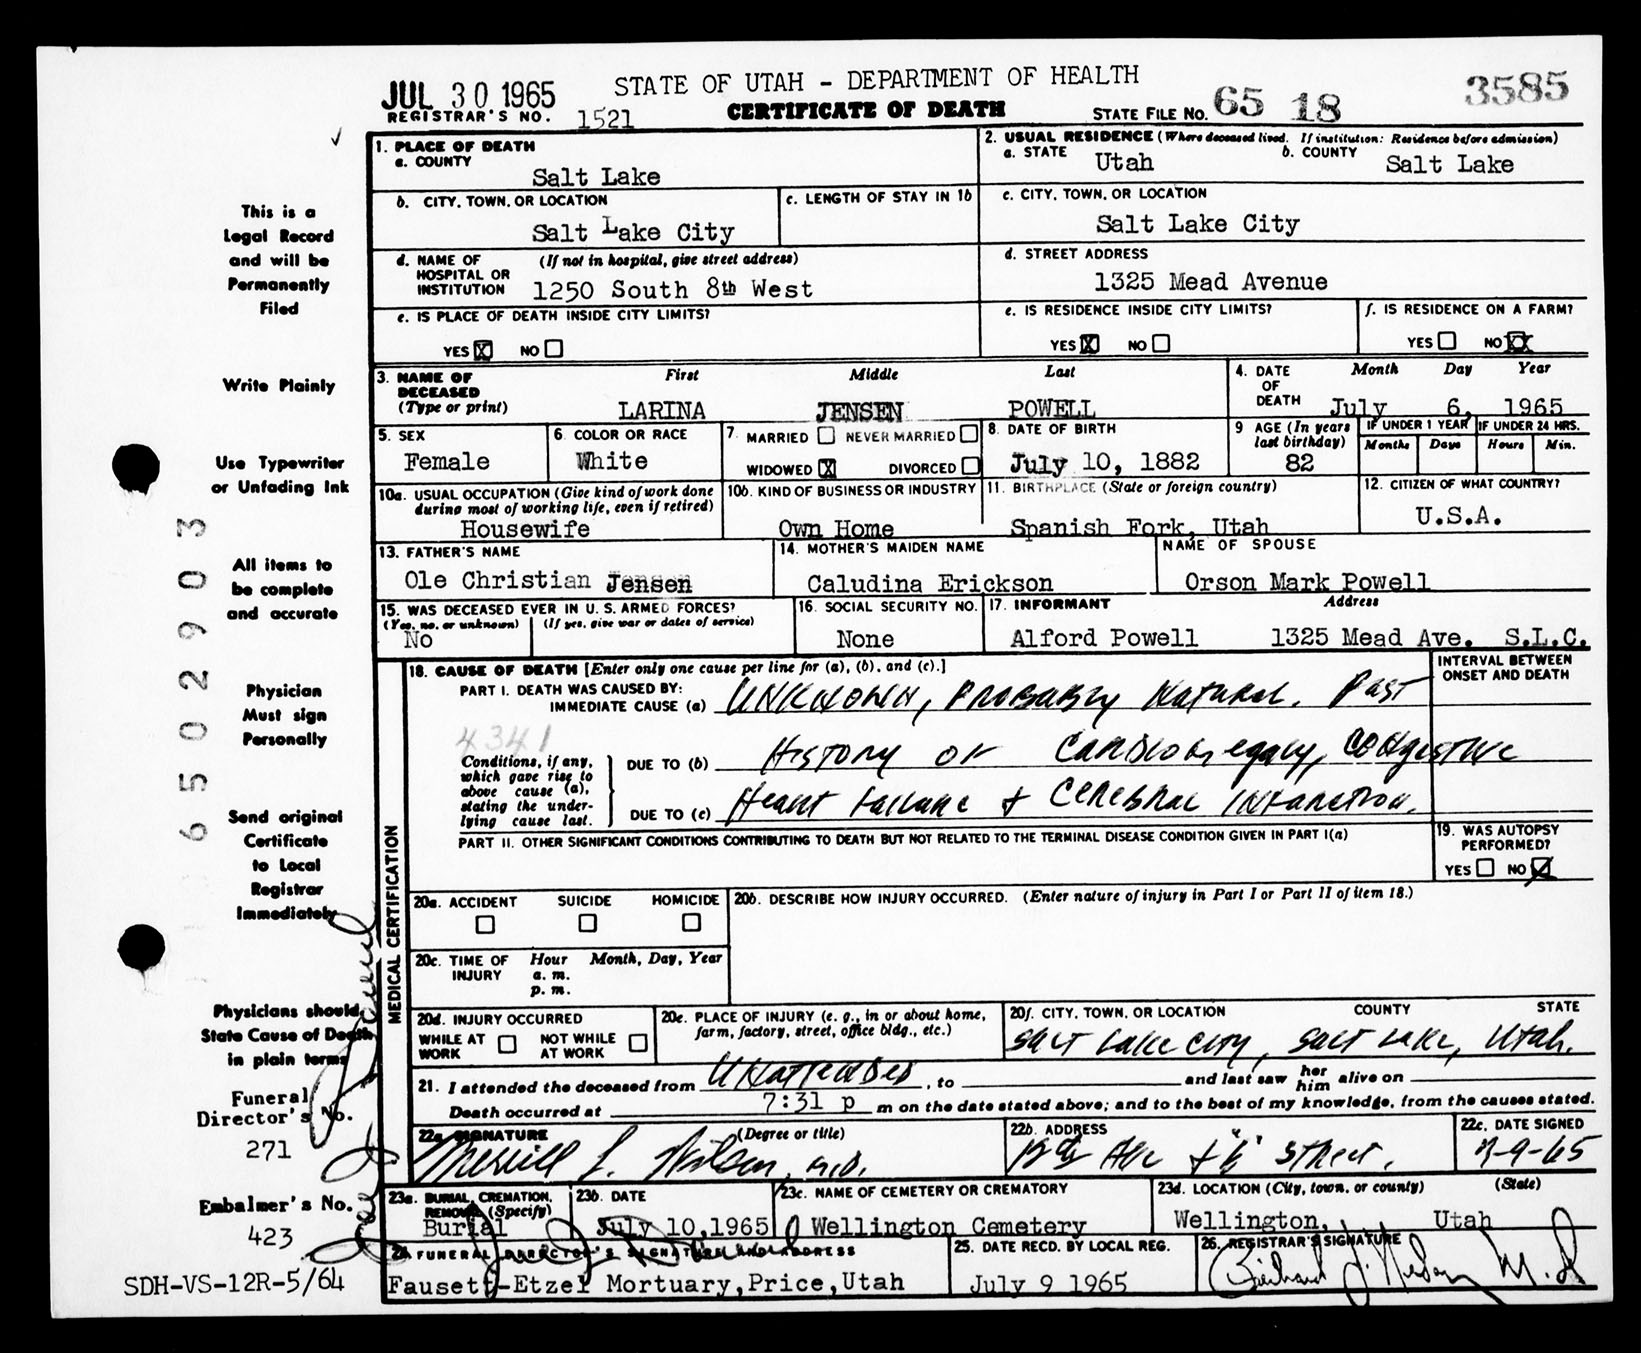 JUL 30 1965
STATE OF UTAH - DEPARTMENT OF HEALTH
3585
REGISTRAR'S NO. 1521
CERTIFICATE OF DEATH
STATE FILE NO. 65 18
1. PLACE OF DEATH
a. COUNTY
Salt Lake
2. USUAL RESIDENCE (Where deceased lived. If institution: Residence before admission)
a. STATE Utah b. COUNTY Salt Lake
b. CITY, TOWN, OR LOCATION
Salt Lake City
c. LENGTH OF STAY IN 1b
c. CITY, TOWN, OR LOCATION
Salt Lake City
d. NAME OF HOSPITAL OR INSTITUTION (If not in hospital, give street address)
1250 South 8th West
d. STREET ADDRESS
1325 Mead Avenue
e. IS PLACE OF DEATH INSIDE CITY LIMITS?
YES X NO
e. IS RESIDENCE INSIDE CITY LIMITS?
YES X NO
f. IS RESIDENCE ON A FARM?
YES NO XX
3. NAME OF DECEASED (Type or print)
First Middle Last
LARINA JENSEN POWELL
4. DATE OF DEATH Month Day Year
July 6, 1965
5. SEX
Female
6. COLOR OR RACE
White
7. MARRIED NEVER MARRIED
WIDOWED X DIVORCED
8. DATE OF BIRTH
July 10, 1882
9 AGE (In years last birthday)
82
IF UNDER 1 YEAR
Months Days
IF UNDER 24 HRS.
Hours Min.
10a. USUAL OCCUPATION (Give kind of work done during most of working life, even if retired)
Housewife
10b. KIND OF BUSINESS OR INDUSTRY
Own Home
11. BIRTHPLACE (State or foreign country)
Spanish Fork, Utah
12. CITIZEN OF WHAT COUNTRY?
U.S.A.
13. FATHER'S NAME
Ole Christian Jensen
14. MOTHER'S MAIDEN NAME
Caludina Erickson
NAME OF SPOUSE
Orson Mark Powell
15. WAS DECEASED EVER IN U. S. ARMED FORCES?
(Yes, no, or unknown) (If yes, give war or dates of service)
No
16. SOCIAL SECURITY NO.
None
17. INFORMANT Address
Alford Powell 1325 Mead Ave. S.L.C.
MEDICAL CERTIFICATION
18. CAUSE OF DEATH [Enter only one cause per line for (a), (b), and (c).]
INTERVAL BETWEEN ONSET AND DEATH
PART I. DEATH WAS CAUSED BY:
IMMEDIATE CAUSE (a) Unknown, Probably Natural. Past
4341
Conditions, if any, which gave rise to above cause (a), stating the underlying cause last.
DUE TO (b) History of Cardiomegaly, Congestive
DUE TO (c) Heart Failure + Cerebral Infarction.
PART II. OTHER SIGNIFICANT CONDITIONS CONTRIBUTING TO DEATH BUT NOT RELATED TO THE TERMINAL DISEASE CONDITION GIVEN IN PART I(a)
19. WAS AUTOPSY PERFORMED?
YES NO X
20a. ACCIDENT SUICIDE HOMICIDE
20b. DESCRIBE HOW INJURY OCCURRED. (Enter nature of injury in Part I or Part II of item 18.)
20c. TIME OF INJURY Hour Month, Day, Year
a. m.
p. m.
20d. INJURY OCCURRED
WHILE AT WORK NOT WHILE AT WORK
20e. PLACE OF INJURY (e. g., in or about home, farm, factory, street, office bldg., etc.)
20f. CITY, TOWN, OR LOCATION COUNTY STATE
Salt Lake City, Salt Lake, Utah.
21. I attended the deceased from Unattended, to and last saw her him alive on
Death occurred at 7:31 p m on the date stated above; and to the best of my knowledge, from the causes stated.
22a. SIGNATURE (Degree or title)
Merrill L. Wilson, M.D.
22b. ADDRESS
12th Ave + "E" Street.
22c. DATE SIGNED
7-9-65
23a. BURIAL, CREMATION, REMOVAL (Specify)
Burial
23b. DATE
July 10,1965
23c. NAME OF CEMETERY OR CREMATORY
Wellington Cemetery
23d. LOCATION (City, town, or county) (State)
Wellington, Utah
24. FUNERAL DIRECTOR'S SIGNATURE AND ADDRESS
Fausett-Etzel Mortuary,Price,Utah
25. DATE RECD. BY LOCAL REG.
July 9 1965
26. REGISTRAR'S SIGNATURE
M.D
This is a
Legal Record
and will be
Permanently
Filed
Write Plainly
Use Typewriter
or Unfading Ink
All items to
be complete
and accurate
Physician
Must sign
Personally
Send original
Certificate
to Local
Registrar
Immediately
Physicians should
State Cause of Death
in plain terms
Funeral
Director's No.
271
Embalmer's No.
423
SDH-VS-12R-5/64
6502903